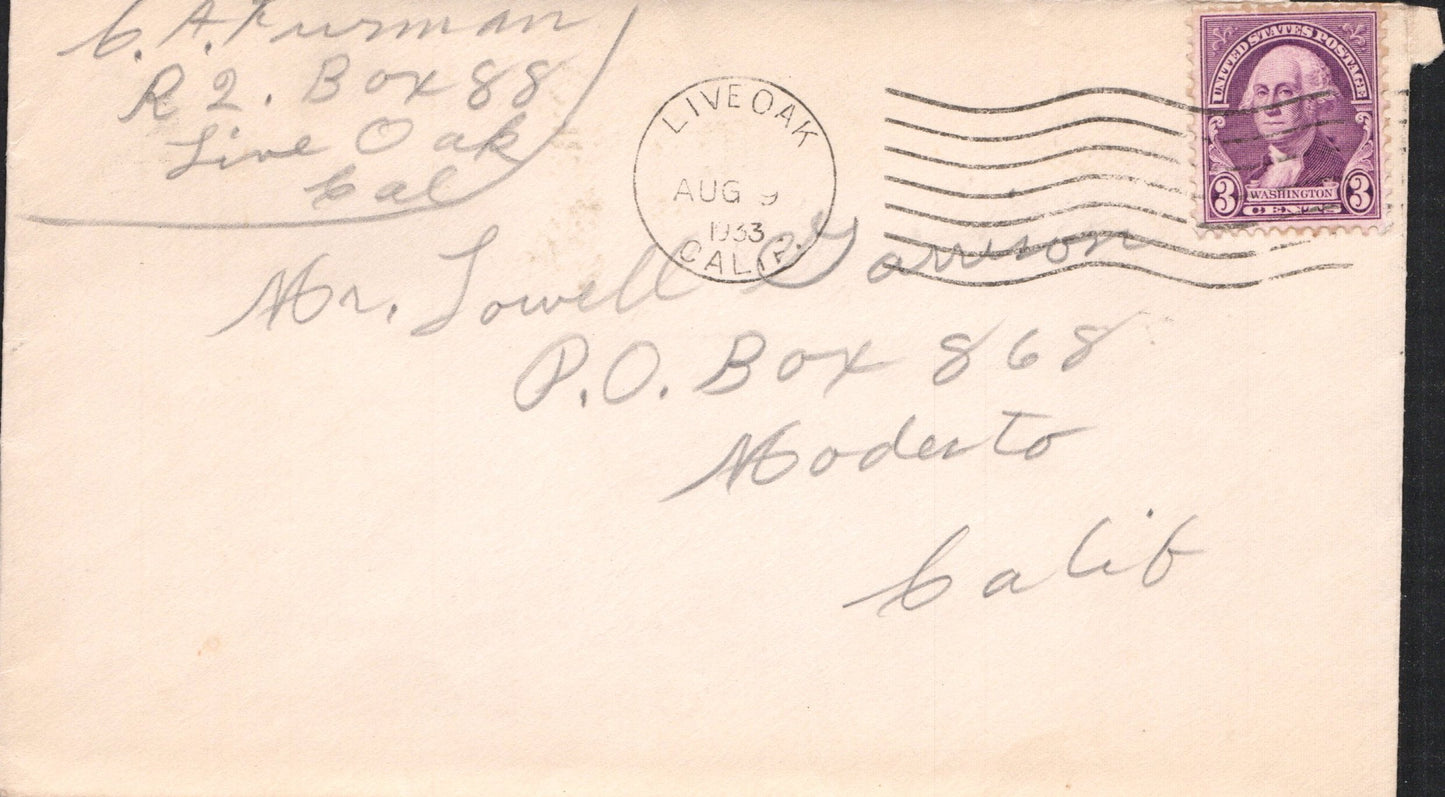 C. A. Furman
R 2. Box 88
Live Oak
Cal
LIVE OAK
AUG 9
1933
CALIF.
UNITED STATES POSTAGE
3 WASHINGTON 3
CENTS
Mr. Lowell Garrison
P.O. Box 868
Modesto
Calif